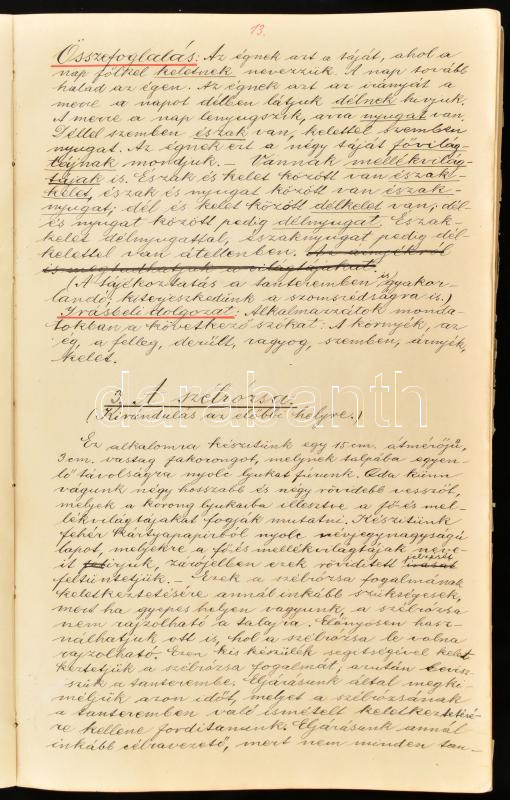 13.
Összefoglalás: Az égnek azt a táját, ahol a
nap fölkel keletnek nevezzük. A nap tovább
halad az égen. Az égnek azt az irányát a
merre a napot délben látjuk délnek hívjuk.
A merre a nap lenyugszik, arra nyugat van.
Déllel szemben észak van, kelettel szemben
nyugat. Az égnek ezt a négy táját fővilág-
tájnak mondjuk. – Vannak mellékvilág-
tájak is. Észak és kelet között van észak-
kelet, észak és nyugat között van észak-
nyugat; dél és kelet között délkelet van; dél
és nyugat között pedig délnyugat. Észak-
kelet délnyugattal, északnyugat pedig dél-
kelettel van átellenben. Az árnyékról
is megtudhatjuk a világtájakat.
(A tájékoztatás a tanteremben is gyakor-
landó, kiterjeszkedünk a szomszédságra is.)
Írásbeli dolgozat: Alkalmazzátok monda-
tokban a következő szókat: A környék, az
ég, a felleg, derült, ragyog, szemben, árnyék,
kelet.
3. A szélrózsa.
(Kirándulás az előbbi helyre.)
Ez alkalomra készítünk egy 15 cm. átmérőjű,
3 cm. vastag fakorongot, melynek talpába egyen-
lő távolságra nyolc lyukat fúrunk. Oda künn
vágunk négy hosszabb és négy rövidebb vesszőt,
melyek a korong lyukaiba illesztve a fő és mel-
lékvilágtájakat fogják mutatni. Készítünk
fehér kártyapapirból nyolc névjegynagyságú
lapot, melyekre a fő és mellékvilágtájak neve-
it írjuk, zárójelben ezek rövidített
feltüntetjük. – Ezek a szélrózsa fogalmának
keletkeztetésére annál inkább szükségesek,
mert ha gyepes helyen vagyunk, a szélrózsa
nem rajzolható a talajra. Előnyösen hasz-
nálhatjuk ott is, hol a szélrózsa le volna
rajzolható. Ezen kis készülék segítségével kelet-
keztetjük a szélrózsa fogalmát, azután bevisz-
szük a tanterembe. Eljárásunk által megkí-
méljük azon időt, melyet a szélrózsának
a tanteremben való ismételt keletkeztetésé-
re kellene fordítanunk. Eljárásunk annál
inkább célravezető, mert nem minden tan-
darabanth.com